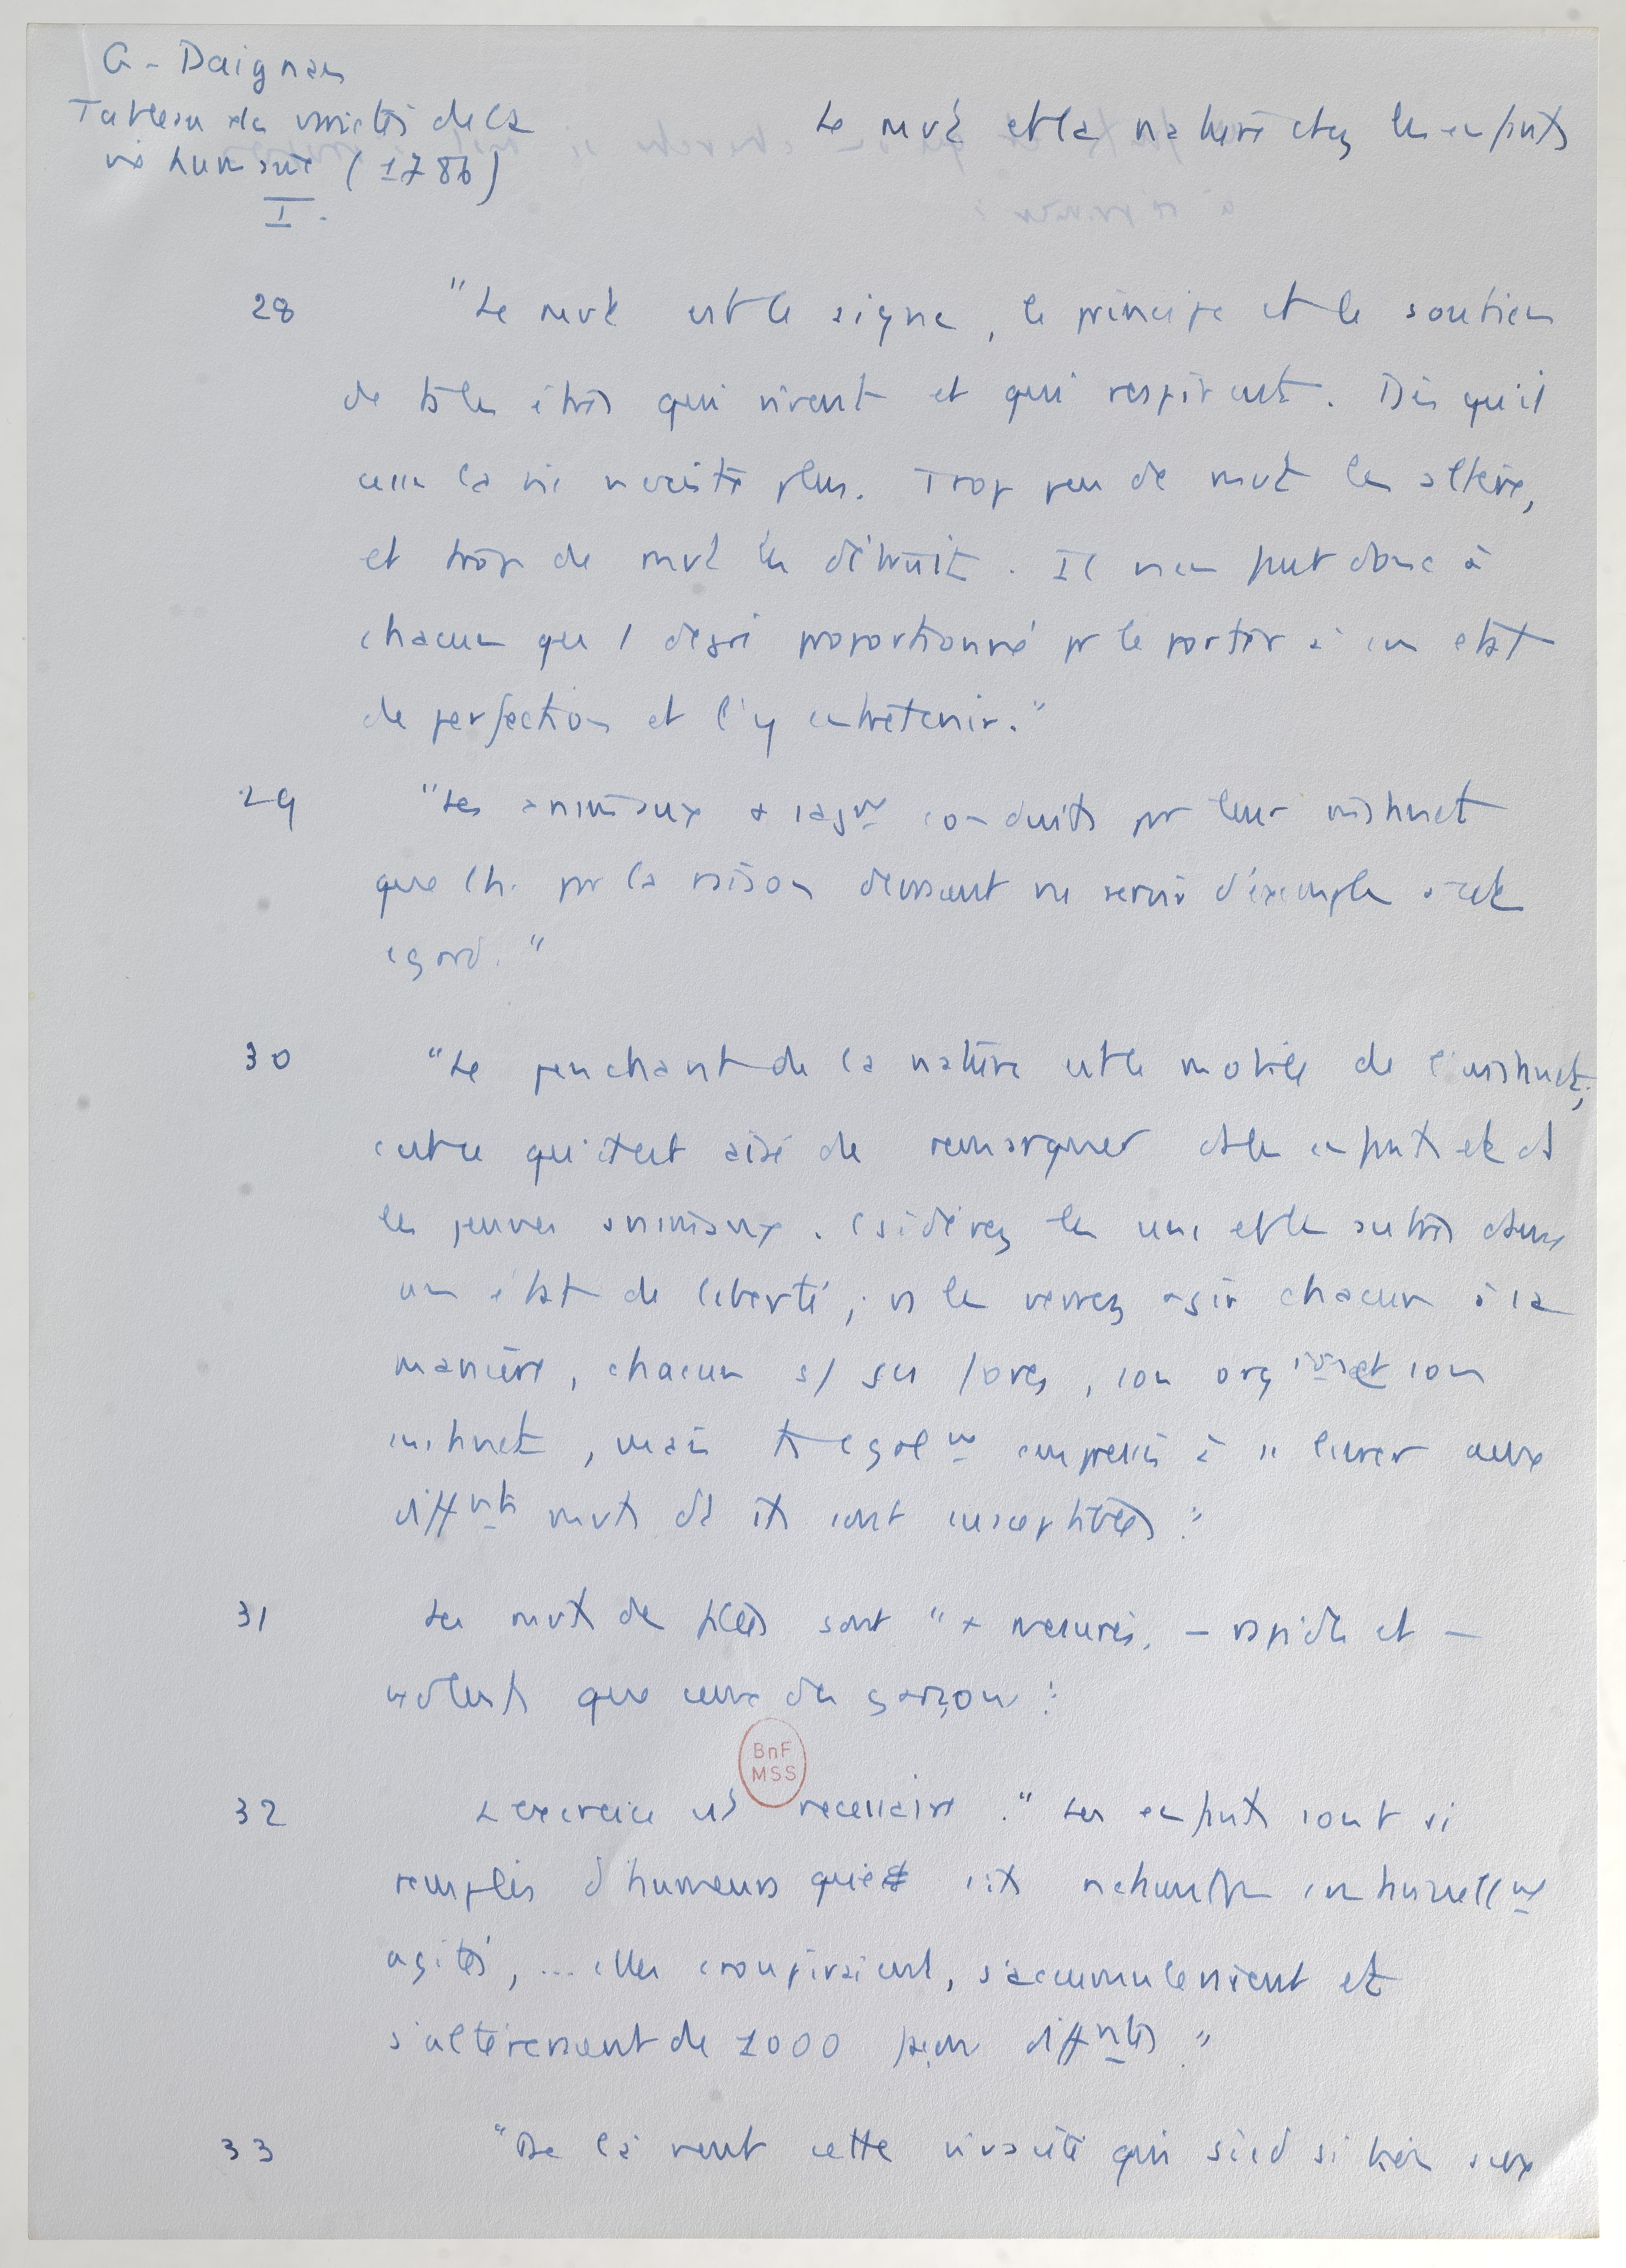 G. Daignan
Tableau des variétés de la
vie humaine (1786)
I.
Le mvt et la nature chez les enfants
28 "Le mvt est le signe, le principe et le soutien
de ts les êtres qui vivent et qui respirent. Dès qu'il
cesse la vie n'existe plus. Trop peu de mvt les altère,
et trop de mvt les détruit. Il n'en faut donc à
chacun que 1 degré proportionné pr le porter à son état
de perfection et l'y entretenir."
29 "Les animaux + sagmt conduits par leur instinct
que l'h. par la raison devraient ns servir d'exemple à cet
égard."
30 "Le penchant de la nature est le mobile de l'instinct;
c'est ce qu'il est aisé de remarquer ds les enfants et ds
les jeunes animaux. Csidérez les uns et les autres dans
un état de liberté; vs les verrez agir chacun à sa
manière, chacun s/ ses forces, son orgion et son
instinct, mais ts égalmt empressés à se livrer aux
diffnts mvts dt ils sont susceptibles."
31 Les mvts des filles sont "+ mesurés, - rapides et -
violents que ceux des garçons."
32 L'exercice est nécessaire. "Les enfants sont si
remplis d'humeurs que s'ils n'étaient pas continuellmt
agités, ... elles croupiraient, s'accumuleraient et
s'altéreraient de 1000 façons diffntes."
BnF
MSS
33 "De là vient cette vivacité qui sied si bien aux